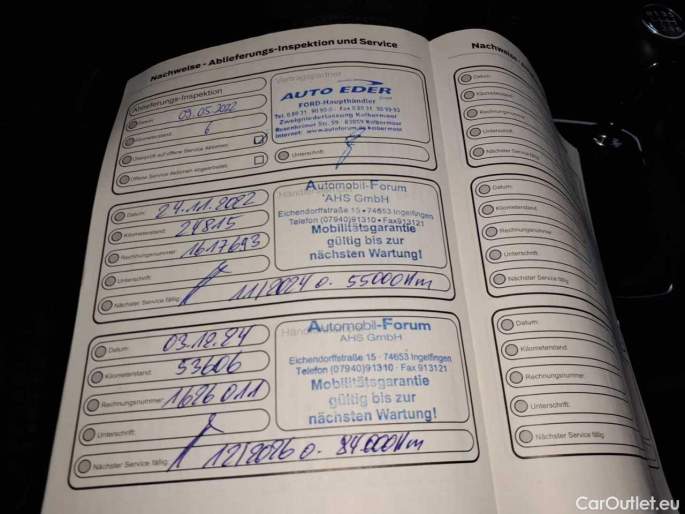 Nachweise - Ablieferungs-Inspektion und Service
Ablieferungs-Inspektion
Datum: 03.05.2022
Kilometerstand: 6
Überprüft auf offene Service Aktionen:
Offene Service Aktionen abgearbeitet:
Vertragspartner
AUTO EDER
FORD-Haupthändler
Zweigniederlassung Kolbermoor
Rosenheimer Str. 59 - 83059 Kolbermoor
Unterschrift:
Datum: 24.11.2022
Kilometerstand: 24815
Rechnungsnummer: 1617693
Unterschrift:
Nächster Service fällig: 11/2024 o. 55000 km
Automobil-Forum
AHS GmbH
Eichendorffstraße 15 • 74653 Ingelfingen
Telefon (07940)91310 • Fax 913121
Mobilitätsgarantie
gültig bis zur
nächsten Wartung!
Datum: 03.12.24
Kilometerstand: 53606
Rechnungsnummer: 1626011
Unterschrift:
Nächster Service fällig: 12/2026 o. 84.000 km
Automobil-Forum
AHS GmbH
Eichendorffstraße 15 · 74653 Ingelfingen
Telefon (07940)91310 · Fax 913121
Mobilitätsgarantie
gültig bis zur
nächsten Wartung!
Nachweise -
Datum:
Kilometerstand:
Rechnungsnummer:
Unterschrift:
Nächster Service fällig:
Datum:
Kilometerstand:
Rechnungsnummer:
Unterschrift:
Nächster Service fällig:
Datum:
Kilometerstand:
Rechnungsnummer:
Unterschrift:
Nächster Service fällig:
CarOutlet.eu